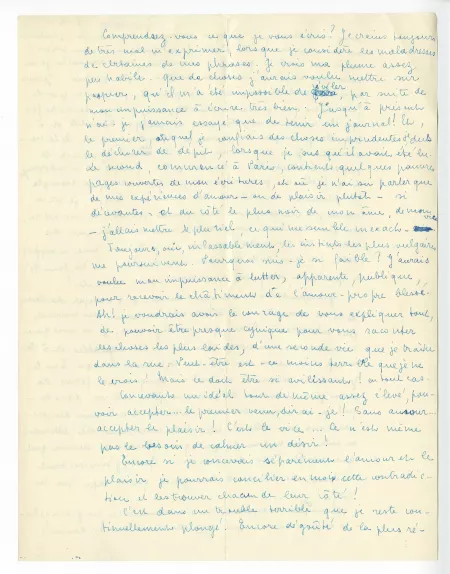 Comprendsez-vous ce que je vous écris? Je crains toujours
de très mal m'exprimer, lorsque je considère les maladresses
de certaines de mes phrases. Je crois ma plume assez
peu habile. Que de choses j'aurais voulu mettre sur
papier, qu'il m'a été impossible de par suite de
mon impuissance à écrire très bien. Jusqu'à présent
n'ai-je jamais essayé que de tenir un journal! Et,
le premier, auquel je confiais des choses imprudentes
le déchirer de dépit, lorsque je sus qu'il avait été lu
le second, commencé à Paris, contient quelques pauvres
pages ouvertes de mon écriture, et où je n'ai su parler que
de mes expériences d'amour - ou de plaisir plutôt - si
décevantes. Et du côté le plus noir de mon âme, de mon
- j'allais mettre le pluriel, ce qui me semble inexact -
Toujours, oui, inlassablement, les instincts les plus vulgaires
me poursuivent. Pourquoi suis-je si faible? J'aurais
voulu mon impuissance à lutter, apparente, publique,
pour recevoir le châtiment de l'amour-propre blessé.
Ah! je voudrais avoir le courage de vous expliquer tout,
de pouvoir être presque cynique pour vous raconter
les choses les plus laides, d'une seconde vie que je traîne
dans la rue. Peut-être est-ce moins terrible que je ne
le crois! Mais ce doit être si avilissant! en tout cas.
Concevant un idéal tout de même assez élevé, pou-
voir accepter... le premier venu, dirai-je! Sans amour...
accepter le plaisir! C'est le vice... Ce n'est même
pas le besoin de calmer un désir!
Encore si je concevais séparément l'amour et le
plaisir, je pourrais concilier en moi cette contradic-
tion et les trouver chacun de leur côté!
C'est dans un trouble terrible que je reste con-
tinuellement plongé. Encore dégoûté de la plus ré-